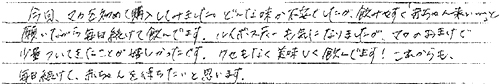 今回、マカを初めて購入してみました。どんな味か不安でしたが、飲みやすく「赤ちゃん来い〜」と
願いながら毎日続けて飲んでます。ルイボスティーも気になりましたが、マカのおまけで
少量ついてきたことが嬉しかったです。クセもなく美味しく飲んでます！これからも、
毎日続けて、赤ちゃんを待ちたいと思います。